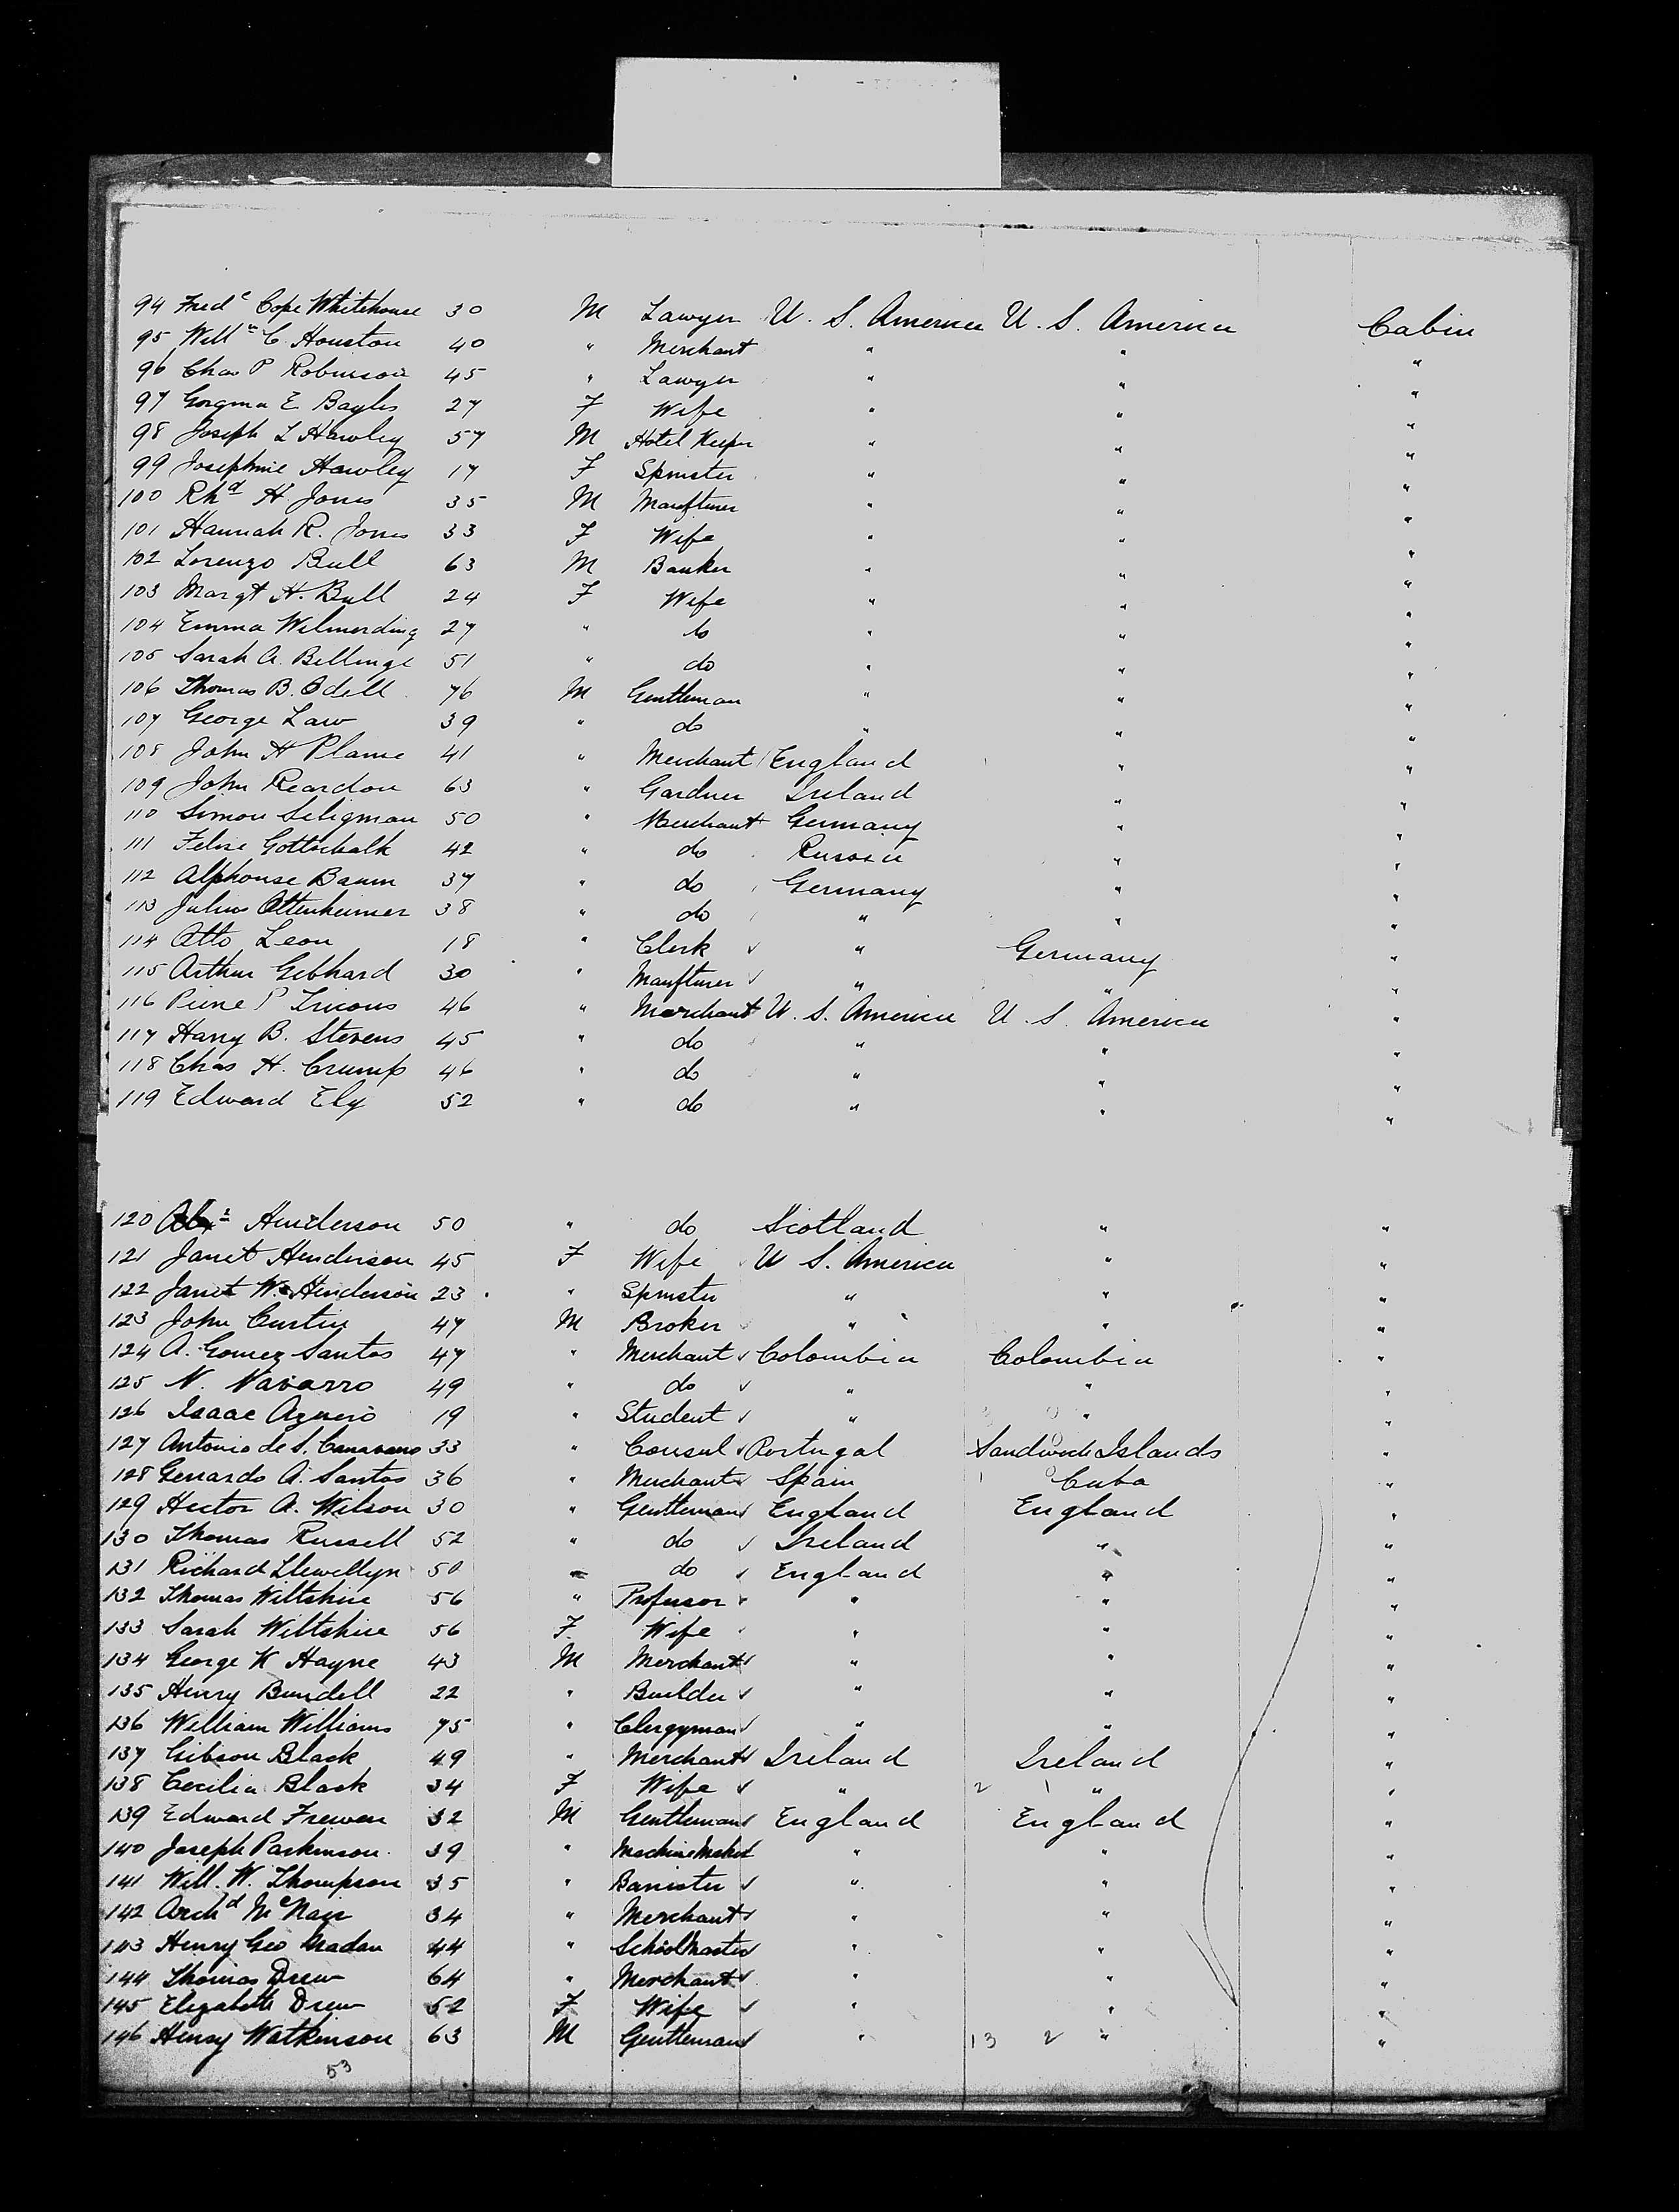 94 Fredc Cope Whitehouse 30 M Lawyer U. S. America U. S. America Cabin
95 Willm C Houston 40 " Merchant " " "
96 Chas P Robinson 45 " Lawyer " " "
97 E Bayles 27 F Wife " " "
98 Joseph L Hawley 57 M Hotel Keeper " " "
99 Josephine Hawley 17 F Spinster " " "
100 Rhd H Jones 35 M Manfturer " " "
101 Hannah R. Jones 33 F Wife " " "
102 Lorenzo Bull 63 M Banker " " "
103 Margt H. Bull 24 F Wife " " "
104 Emma Wilmerding 27 " do " " "
105 Sarah A. Billinge 51 " do " " "
106 Thomas B. Odell 76 M Gentleman " " "
107 George Law 39 " do " " "
108 John H Plame 41 " Merchant England " "
109 John Reardon 63 " Gardner Ireland " "
110 Simon Seligman 50 " Merchant Germany " "
111 Gottschalk 42 " do Russia " "
112 Alphonse Baum 37 " do Germany " "
113 Julius Ottenheimer 38 " do " " "
114 Otto Leon 18 " Clerk " Germany "
115 Arthur Gebhard 30 " Manfturer " " "
116 P 46 " Merchant U. S. America U. S. America "
117 Harry B. Stevens 45 " do " " "
118 Chas H. Crump 46 " do " " "
119 Edward Ely 52 " do " " "
120 Henderson 50 " do Scotland " "
121 Janet Henderson 45 F Wife U S. America " "
122 Janet W. Henderson 23 " Spinster " " "
123 John Curtin 47 M Broker " " "
124 A. Gomez Santos 47 " Merchant Colombia Colombia "
125 N. Navarro 49 " do " " "
126 Isaac Aguero 19 " Student " " "
127 Antonio de S. Canavarro 33 " Consul Portugal Sandwich Islands "
128 Gerrardo A. Santos 36 " Merchant Spain Cuba "
129 Hector A. Wilson 30 " Gentleman England England "
130 Thomas Russell 52 " do Ireland " "
131 Richard Llewellyn 50 " do England " "
132 Thomas Wiltshire 56 " Professor " " "
133 Sarah Wiltshire 56 F. Wife " " "
134 George W Hayne 43 M Merchant " " "
135 Henry Bundell 22 " Builder " " "
136 William Williams 75 " Clergyman " " "
137 Gibson Black 49 " Merchant Ireland Ireland "
138 Cecilia Black 34 F Wife " " "
139 Edward Frewen 32 M Gentleman England England "
140 Joseph Parkinson 39 " Machine Maker " " "
141 Will. W. Thompson 35 " Barrister " " "
142 Archd McNair 34 " Merchant " " "
143 Henry Geo 44 " School Master " " "
144 Thomas Drew 64 " Merchant " " "
145 Elizabeth Drew 52 F Wife " " "
146 Henry Watkinson 63 M Gentleman " 13 2 " "
53